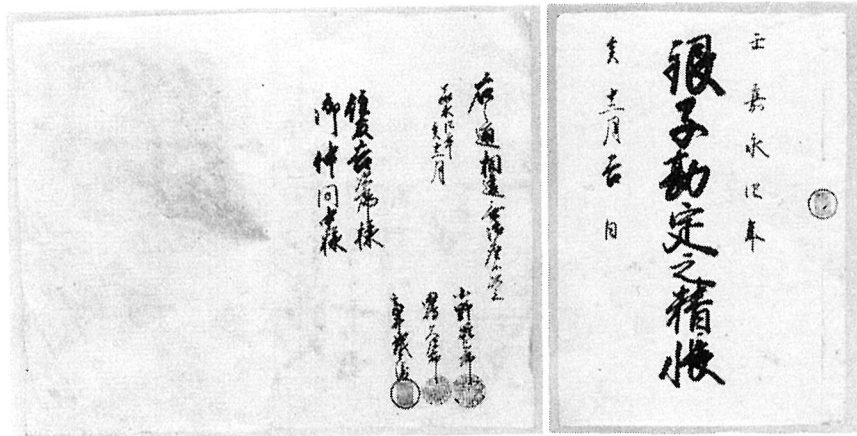 壬嘉永四年
銀子勘定之精帳
亥十二月吉日
右之通相違無御座候以上
嘉永四年
亥十二月
住友吉次郎様
御仲間中様